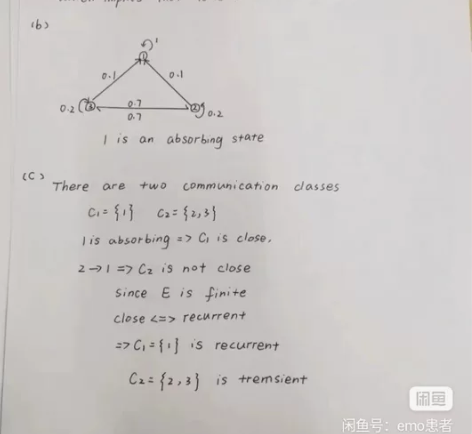 (b)
1
1
0.1
0.1
0.2
3
0.7
0.7
2
0.2
1 is an absorbing state
(C) There are two communication classes
C₁ = {1} C₂ = {2,3}
1 is absorbing => C₁ is close.
2 → 1 => C₂ is not close
Since E is finite
close <=> recurrent
=> C₁ = {1} is recurrent
C₂ = {2,3} is tremsient
闲鱼
闲鱼号：emo患者